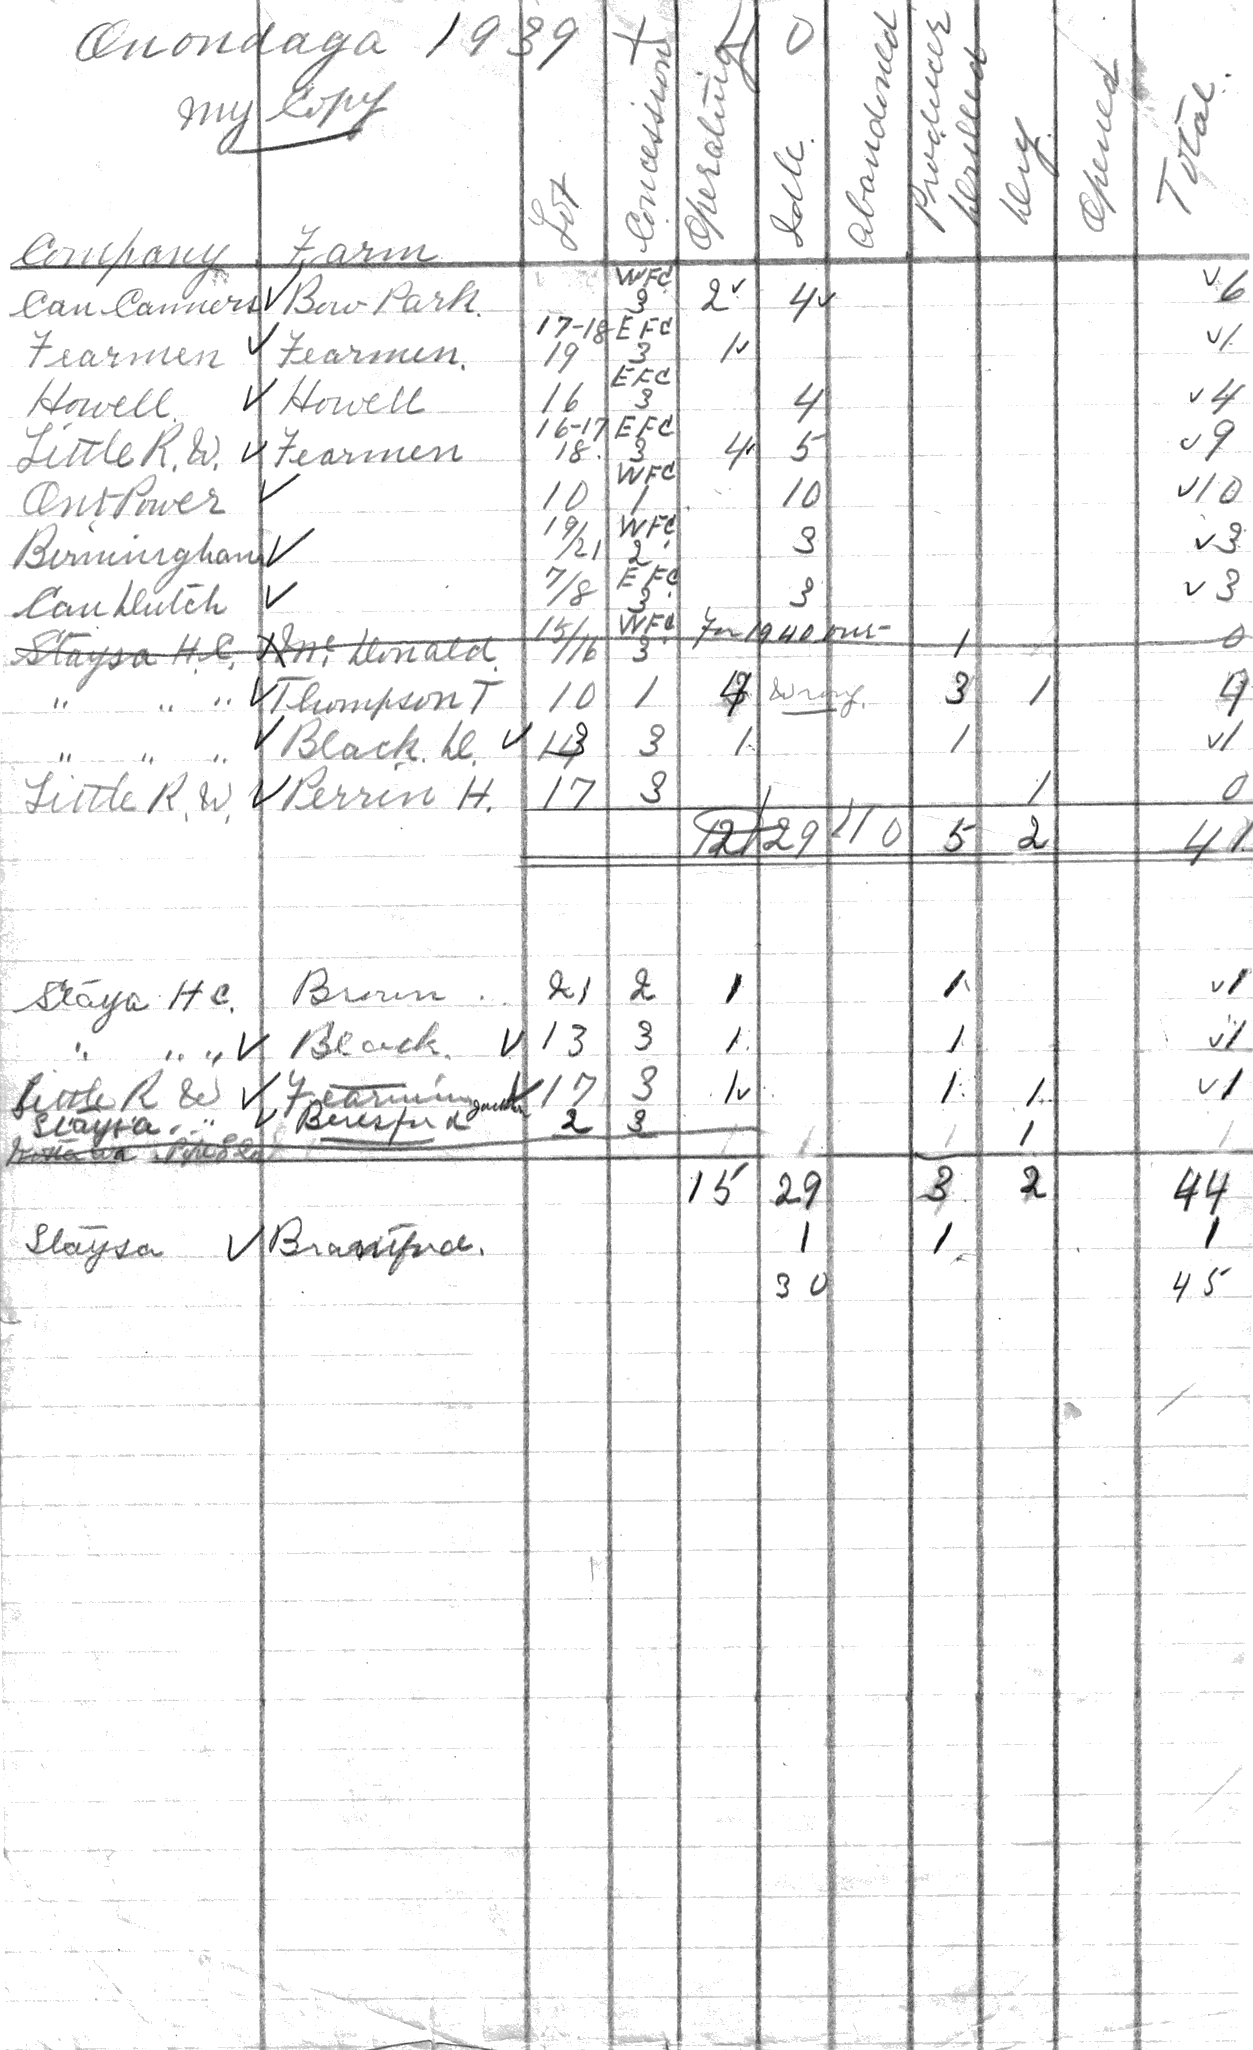 Onondaga 1939 + ✓ 0
My Copy
Company Farm Lot Concession Operating Idle. Abandoned Producer Drilled Dry. Opened Total.
Can Canners ✓ Bow Park. WFC 3 2✓ 4✓ ✓6
Fearmen ✓ Fearmen. 17-18 19 EFC 3 1✓ ✓1
Howell. ✓ Howell 16 EFC 3 4 ✓4
Little R. W. ✓ Fearmen 16-17 18. EFC 3 4 5 ✓9
Ont Power ✓ 10 WFC 1 10 ✓10
Birmingham ✓ 19/21 WFC 2 3 ✓3
Can Dutch ✓ 7/8 EFC 3 3 ✓3
Staysa H.C. X Mc Donald. 15/16 WFC 3 For 1940 1 0
" " " ✓ Thompson T 10 1 4 wrong. 3 1 4
" " " ✓ Black. D. ✓ 13 3 1 1 ✓1
Little R. W. ✓ Perrin H. 17 3 1 0
12 29 0 5 2 41
Staysa H C. Brown 21 2 1 1 ✓1
" " " ✓ Black. ✓ 13 3 1 1 ✓1
Little R W ✓ 17 3 1✓ 1 1 ✓1
Staysa " ✓ Beresford 2 3 1
15 29 3 2 44
Staysa ✓ Brantford. 1 1 1
30 45